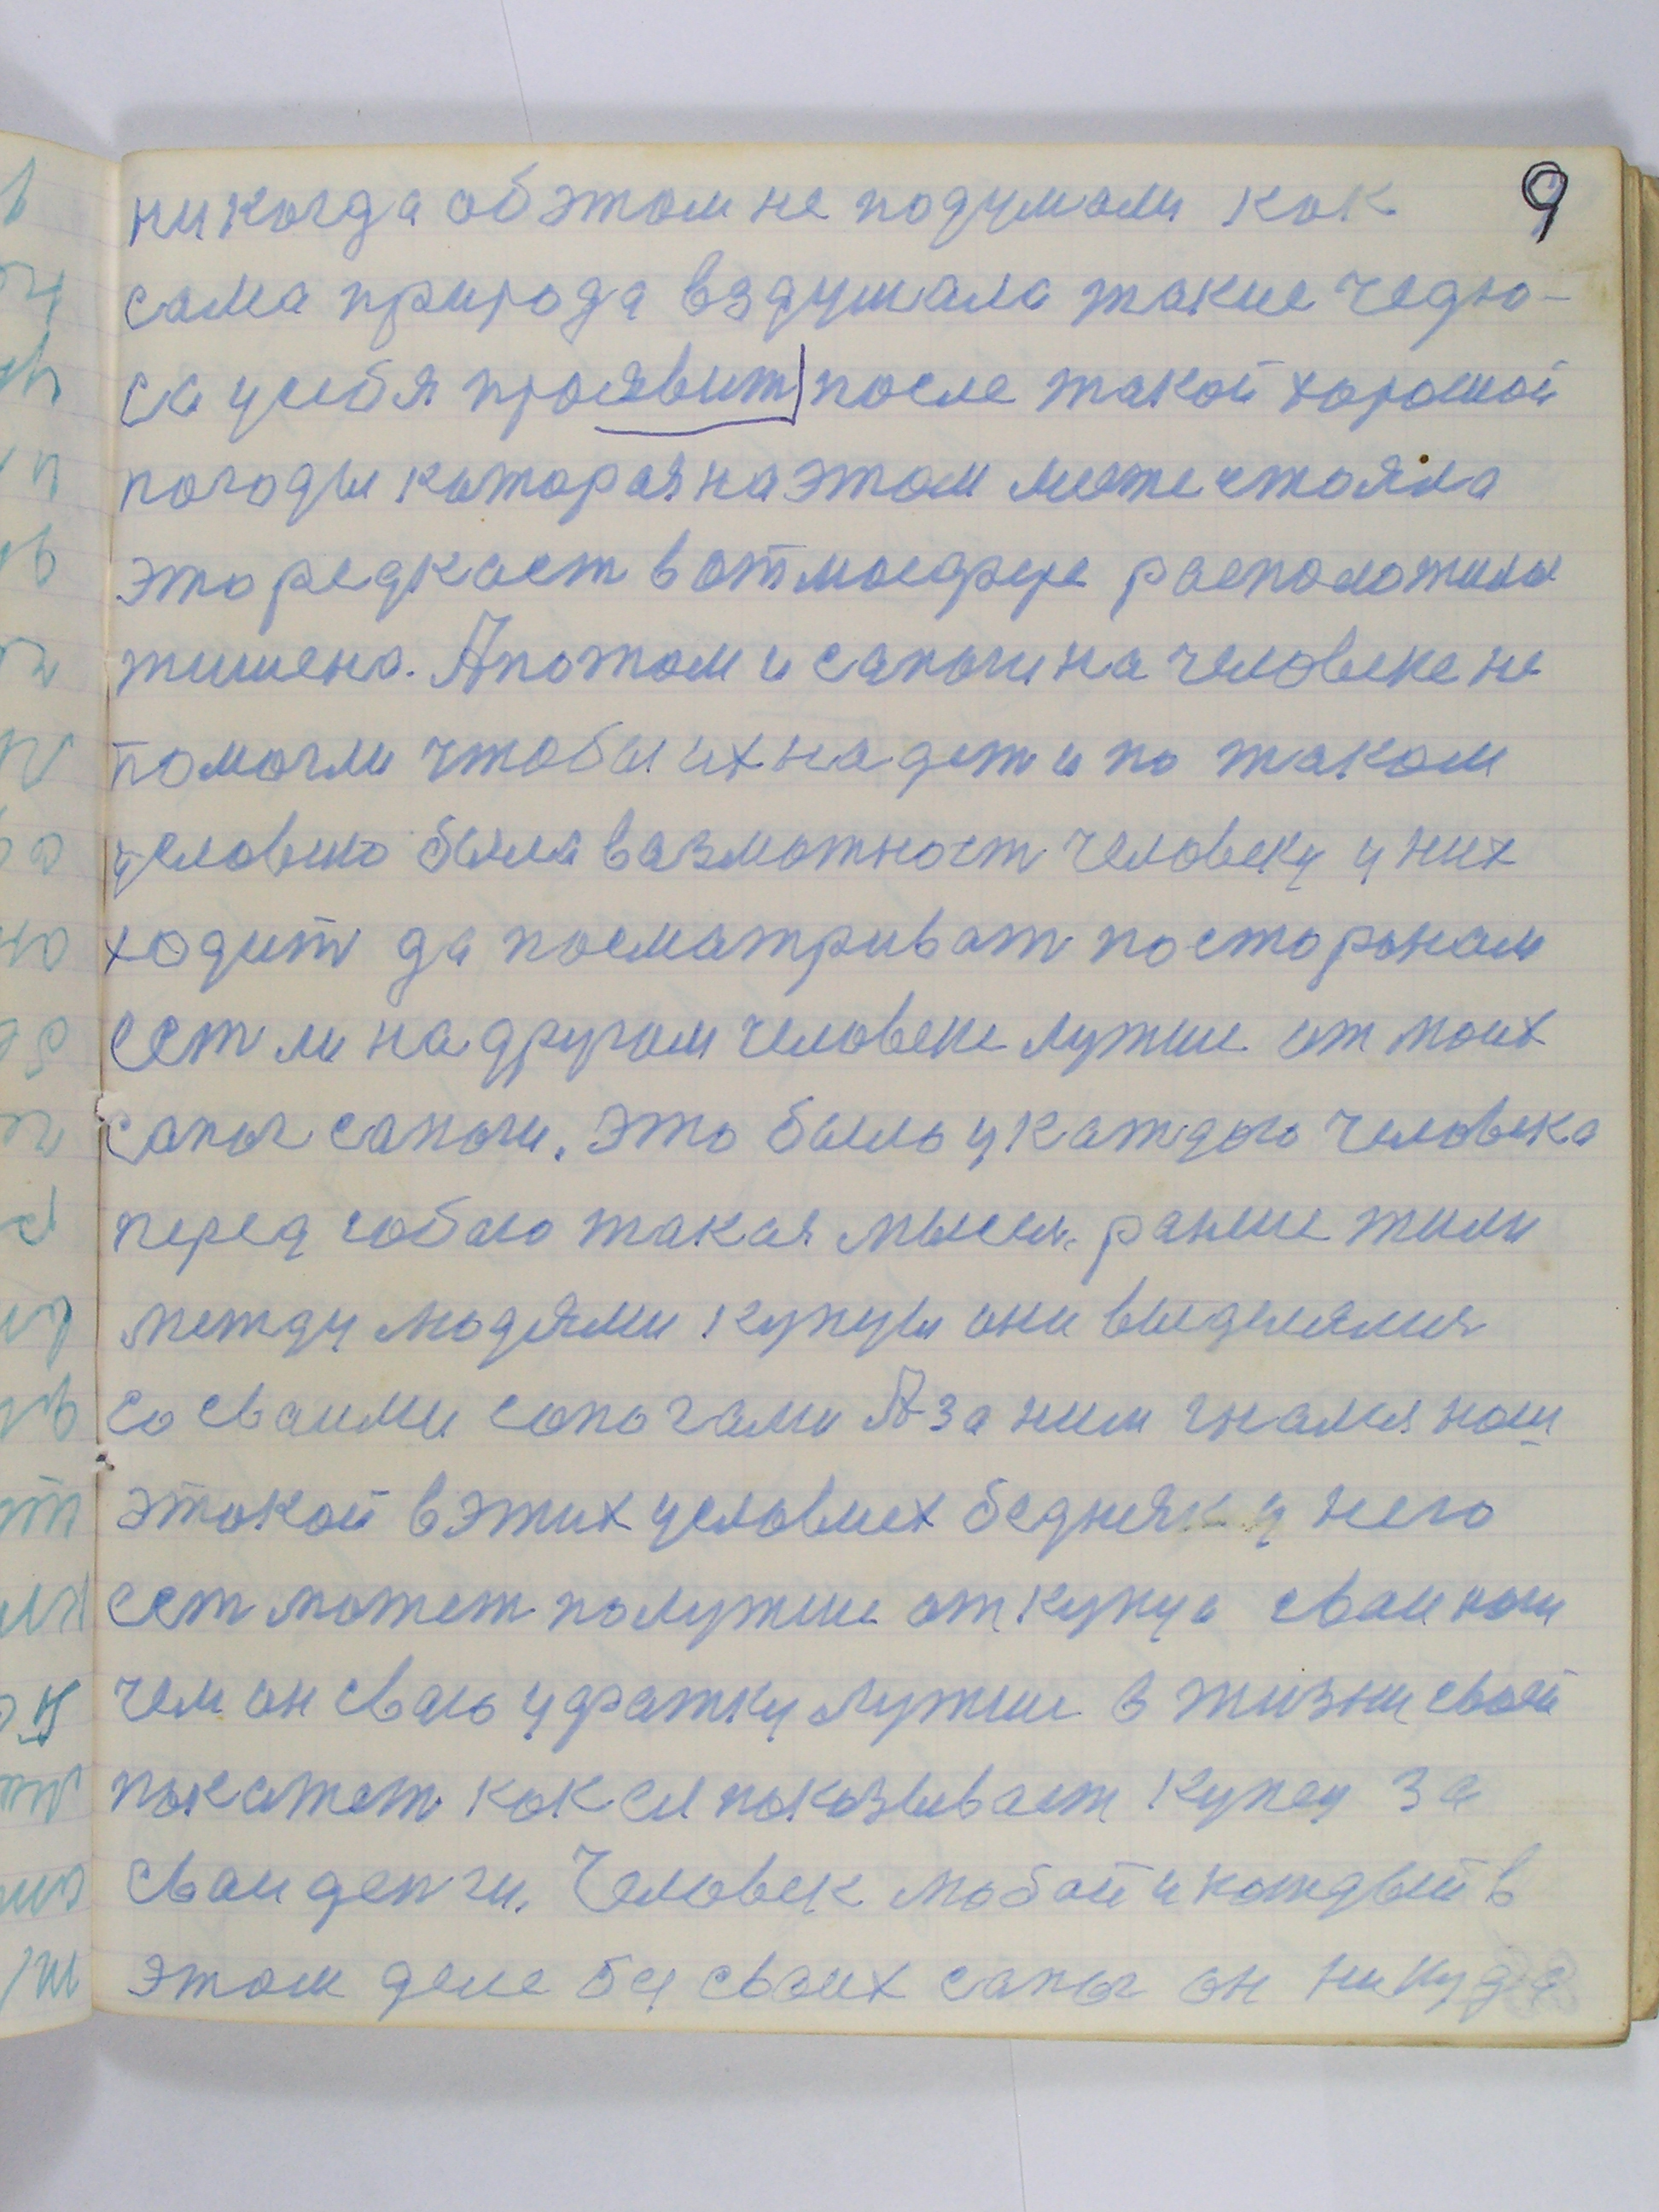 9
никогда об этом не подумали как
сама природа вздумала такие чедю-
са усебя проявит после такой хорошой
погоды каторая на этом месте стояла
это редкаст в атмосфере расположила
тишена. А потом и сапоги на человеке не
помогли чтобы их надет и по таком
условию была вазможност человеку у них
ходит да посматриват по сторонам
ест ли на другом человеке лутше от моих
сапог сапоги. Это было у каждого человека
перед собою такая мысля. ранше жили
между людями купцы они выделялися
со сваими сапогами А за ним гнался наш
этокой в этих условиех бедняк у него
ест может полутше от купца сваи наги
чем он сваю ухватку лутше в жизни своей
покажет как ея показывает купец за
сваи денги. Человек любой и каждый в
этом деле без сваих сапог он никуда